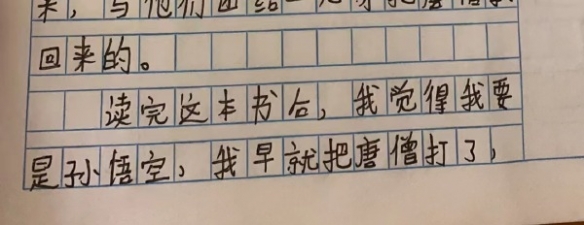 来，与他们团结一
回来的。
读完这本书后，我觉得我要
是孙悟空，我早就把唐僧打了，